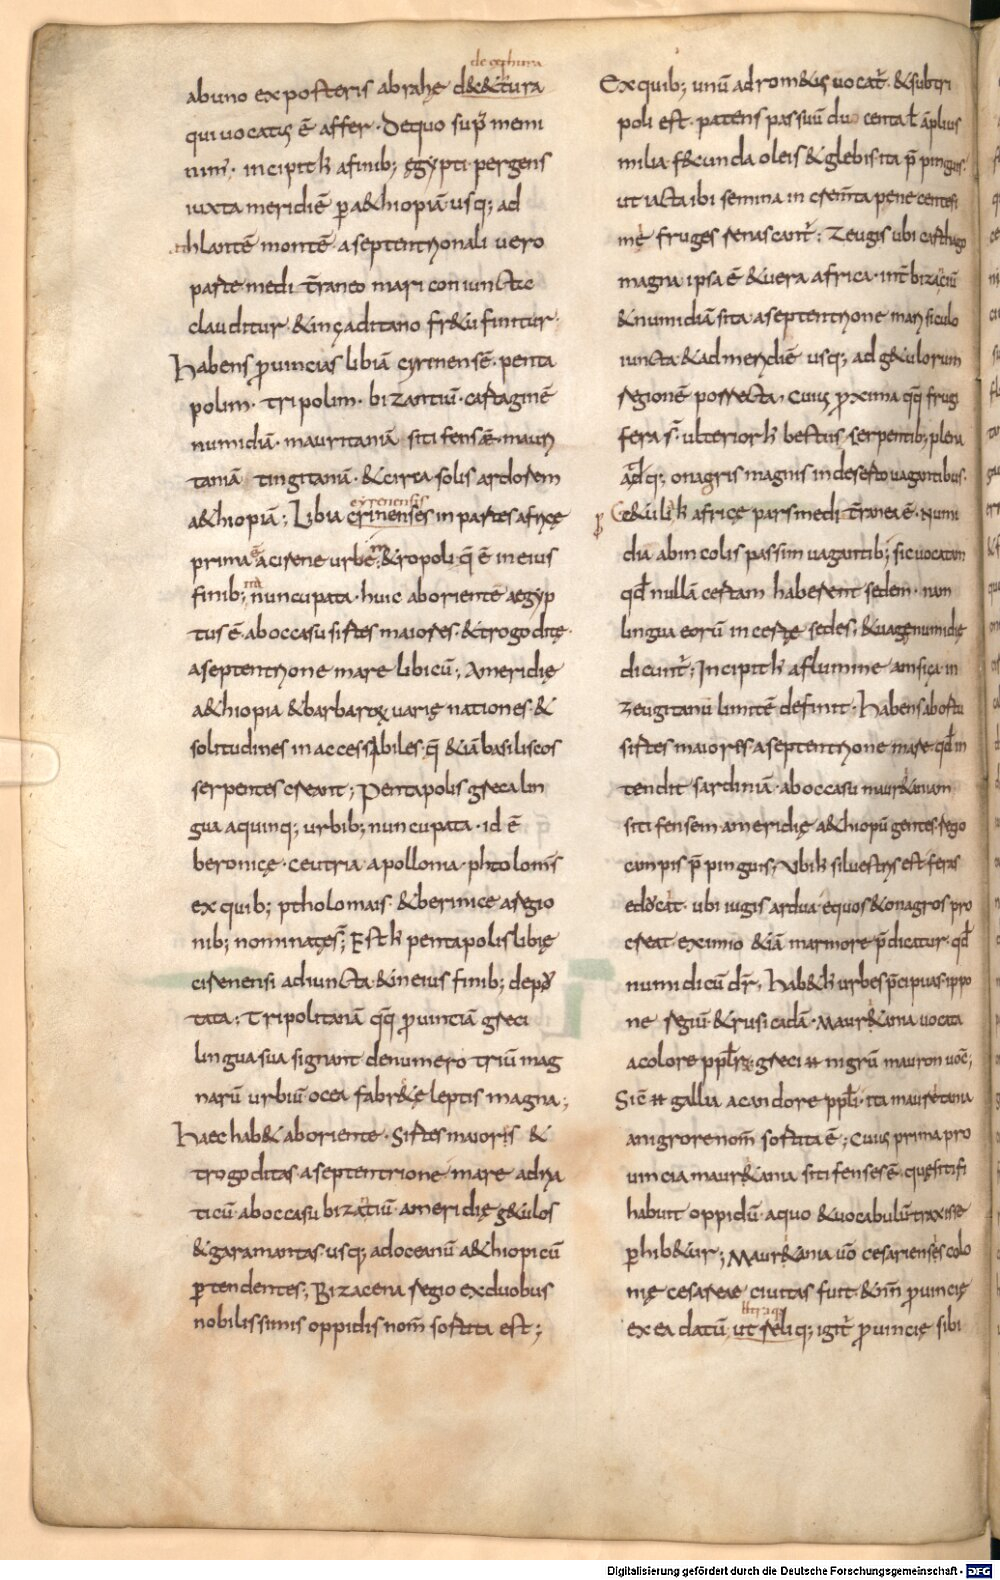 de cethura
ab uno ex posteris abrahę d&&tura
qui uocatus ē affer · De quo sup̄ memi
nim̄ · incipit h̄ a finib; ęgypti · pergens
iuxta meridiē p a&hiopiā usq; ad
athlantē montē · a septentrionali uero
parte medi t̄raneo mari coniuncta
clauditur · & in gaditano fr&u finitur ·
Habens p̄uincias libiā cyrinensē · penta
polim · tripolim · bizantiū · cartaginē
numidiā · mauritaniā sitifensē · mauri
taniā tingitanā · & circa solis ardorem
a&hiopiā ; Libia crinenses in partes africę
cyrenensis
prima ē a cirene urbe m&ropoli q̄ ē in eius
finib; nuncupata · huic ab oriente aegyp
tus ē · ab occasu sirtes maiores · & trogoditę ·
a septentrione mare libicū ; A meridię
a&hiopia & barbarorum uarię nationes · &
solitudines in accessibiles · q̄ &iā basiliscos
serpentes creant ; Pentapolis greca lin
gua a quinq; urbib; nuncupata · id ē
beronicę · ceutria · apollonia · phtolomis
ex quib; ptholomais · & bernice a regio
nib; nominatęs̄ ; Est h̄ pentapolis libię
cirenensi adiuncta · & in eius finib; depu
tata ; Tripolitanā q̄q p̄uinciā greci
lingua sua signant de numero triū mag
narū urbiū · ocea fabr&ę leptis magna ;
Haec hab& ab oriente · Sirtes maioris &
trogoditas · a septentrione · mare adria
ticū · ab occasu bizatiū · a meridię g&ulos
& garamantas · usq; ad oceanū a&hiopicū
ptendentes ; Bizacena regio ex duobus
nobilissimis oppidis nom̄ sortita est ;
Ex quib; unū adrom&is uocat̄ · & subtri
poli est · patens passuū du centa ł āplius
milia · f&cunda oleis & glebis ita p̄ pinguis ·
ut iacta ibi semina in crem̄ta pene centesi
mę fruges renascant̄ ; Zeugis ubi carthago
magna ipsa ē & uera africa · int̄ bizaciū
& numidiā sita · a septentrione mari siculo
iuncta · & ad meridiē usq; ad g&ulorum
regionē porrecta · Cuius p̄xima q̄q frugi
fera s̄ · ulterior h̄ bestiis · serpentib; plena
ad q; onagris magnis in deserto uagantibus ·
G&uli h̄ africę pars medi t̄ranea ē · Numi
dia ab in colis passim uagantib; sic uocatam
qd̄ nullā certam haberent sedem · nam
lingua eorū in certę sedes ; & uagę numidię
dicunt̄ ; Incipit h̄ a flumine amsiga in
zeugitanū limitē definit · Habens ab ortu
sirtes maioris · a septentrione mare · qd̄ in
tendit sardiniā · ab occasu maur&aniam
siti fensem · a meridię a&hiopū gentes · regio
canpis p̄ pinguis ; Vbi h̄ siluestris est feras
educat · ubi iugis ardua · equos & onagros pro
creat · eximio &iā marmore p̄dicatur · qd̄
numidicū dr̄ ; Hab& h̄ urbes p̄cipuas · ippo
ne regiū & rusicadā · Maur&ania uocata
a colore pplr̄ · greci H nigrū mauron uoc̄ ;
Sic̄ H gallia a candore ppl̄i · ita mauretania
a nigrore nom̄ sortita ē ; Cuius prima pro
uincia maur&ania siti fenses ē · quę sitifi
habuit oppidū · a quo & uocabulū traxisse
phib&ur ; Maur&ania uō cesarienses colo
nię cesareae ciuitas fuit · & nm̄ p̄uincię
ex ea datū ; ut reli q; igit̄ p̄uincię sibi